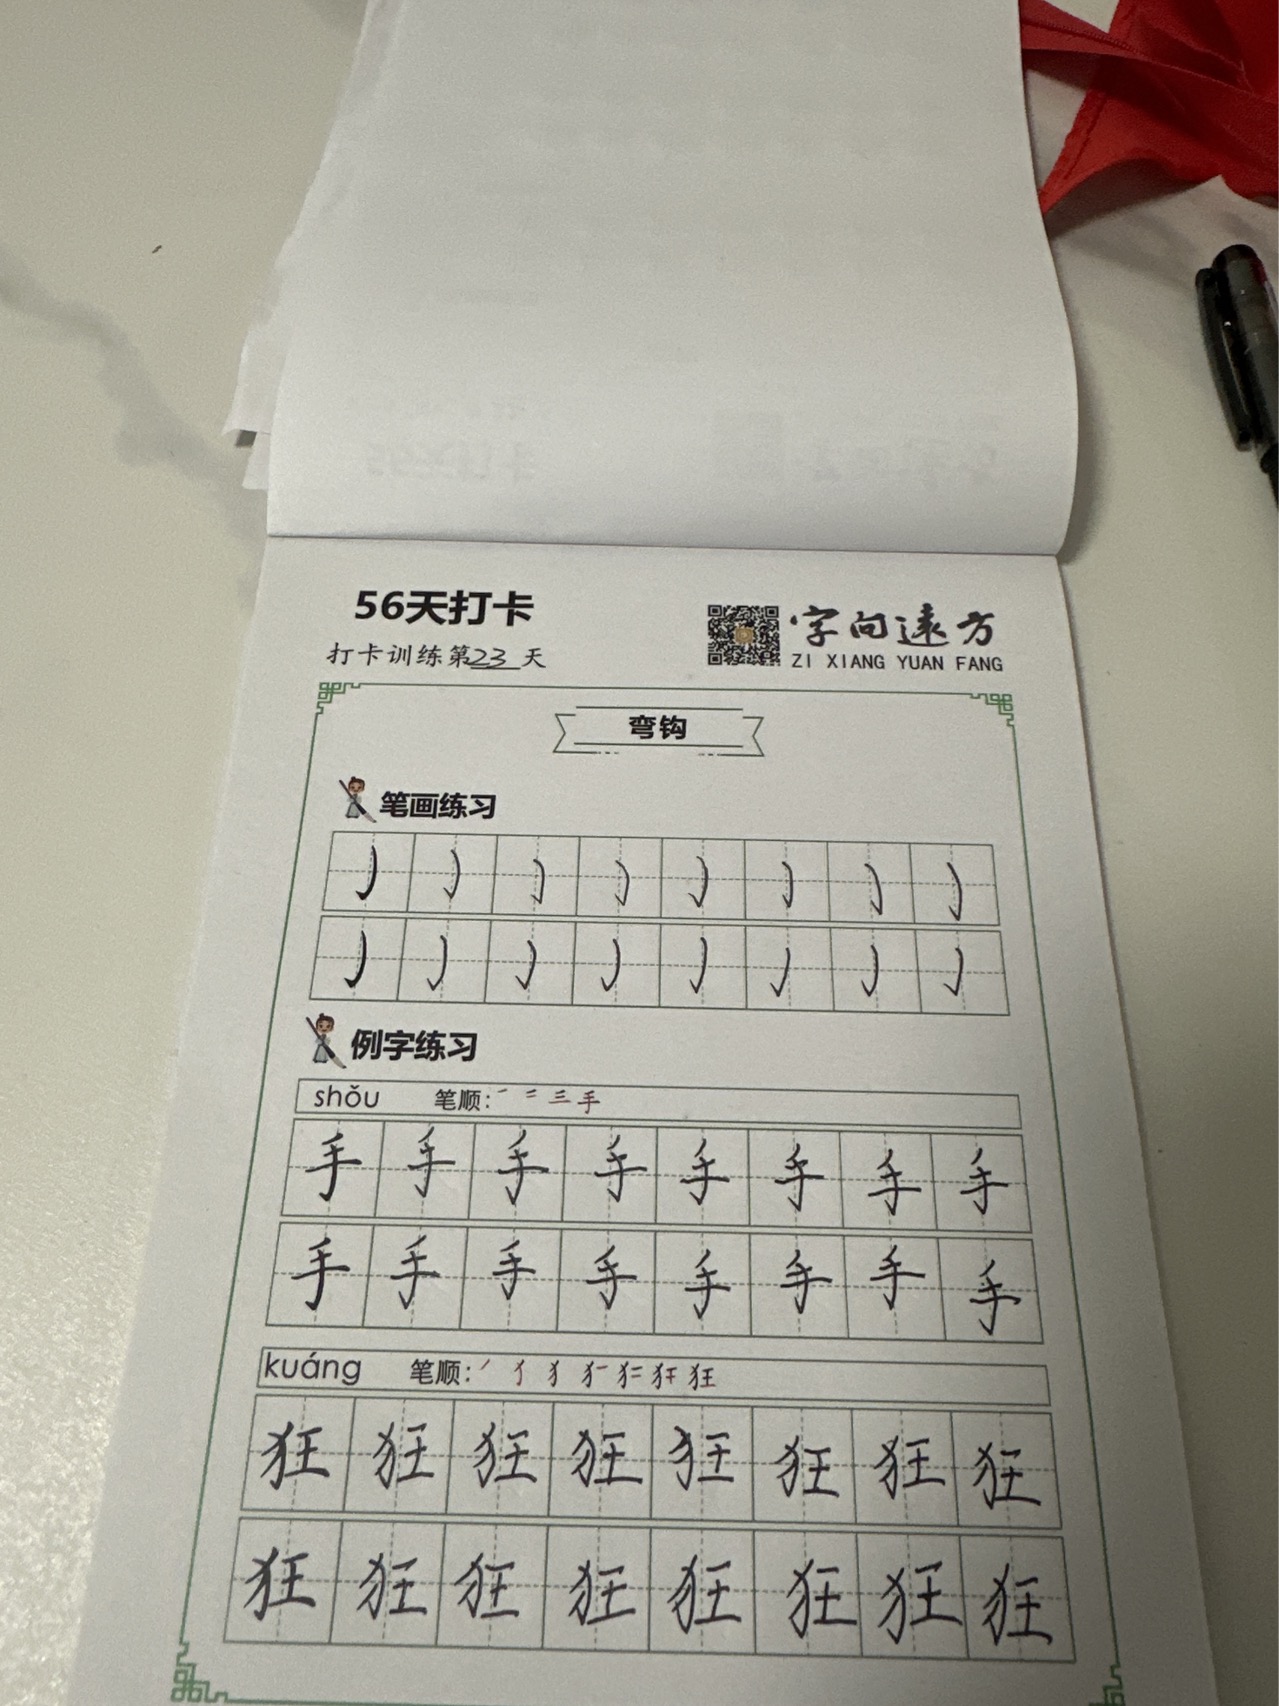 56天打卡
打卡训练第23天
字向远方
ZI XIANG YUAN FANG
弯钩
笔画练习
㇁㇁㇁㇁㇁㇁㇁㇁
㇁㇁㇁㇁㇁㇁㇁㇁
例字练习
shǒu 笔顺：㇒ 二 三 手
手手手手手手手手
手手手手手手手手
kuáng 笔顺：㇒ 犭 狂
狂狂狂狂狂狂狂狂
狂狂狂狂狂狂狂狂